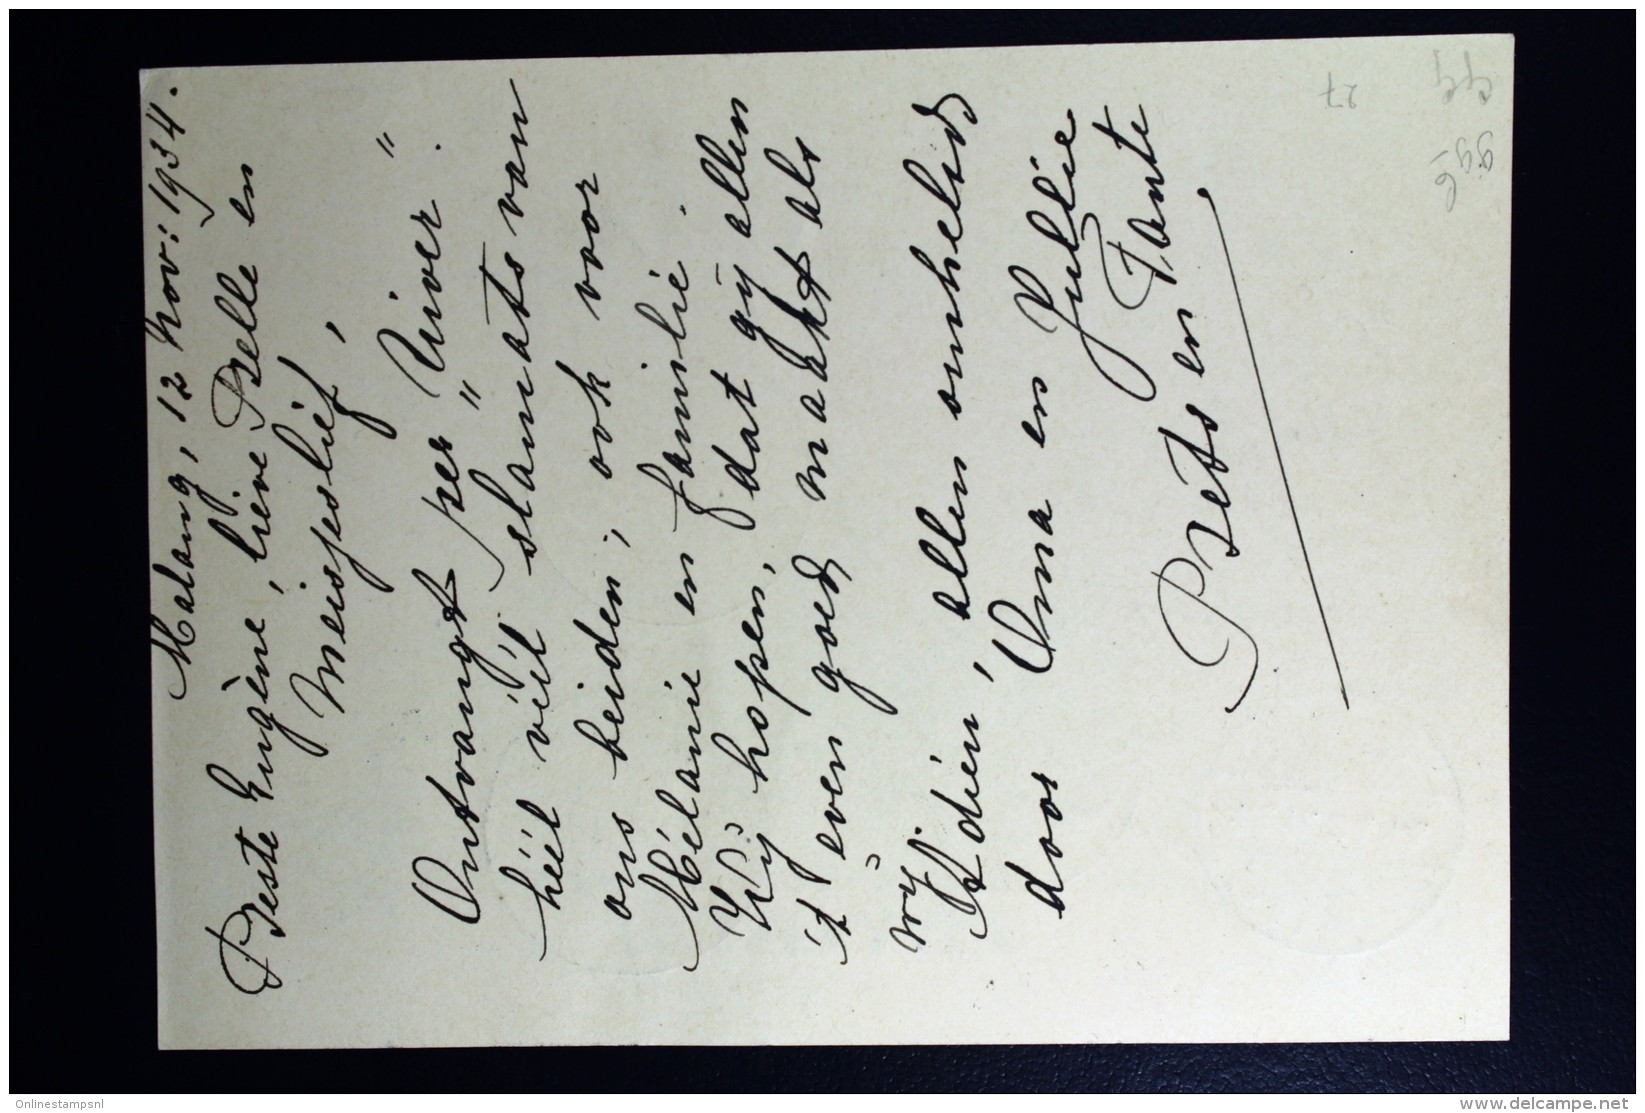 Malang, 12 Nov: 1934.
Beste Eugène, lieve Belle en
Meisjeslief,
Ontvangt per "Uiver".
héél véél slamats van
ons beiden, ook voor
Mélanie en familie.
Wij hopen, dat gij allen
't even goed maakt als
wij.
Adieu, allen omhelsd
door Oma en Jullie
Bets en Tante
27
996
Onlinestampsnl
www.delcampe.net